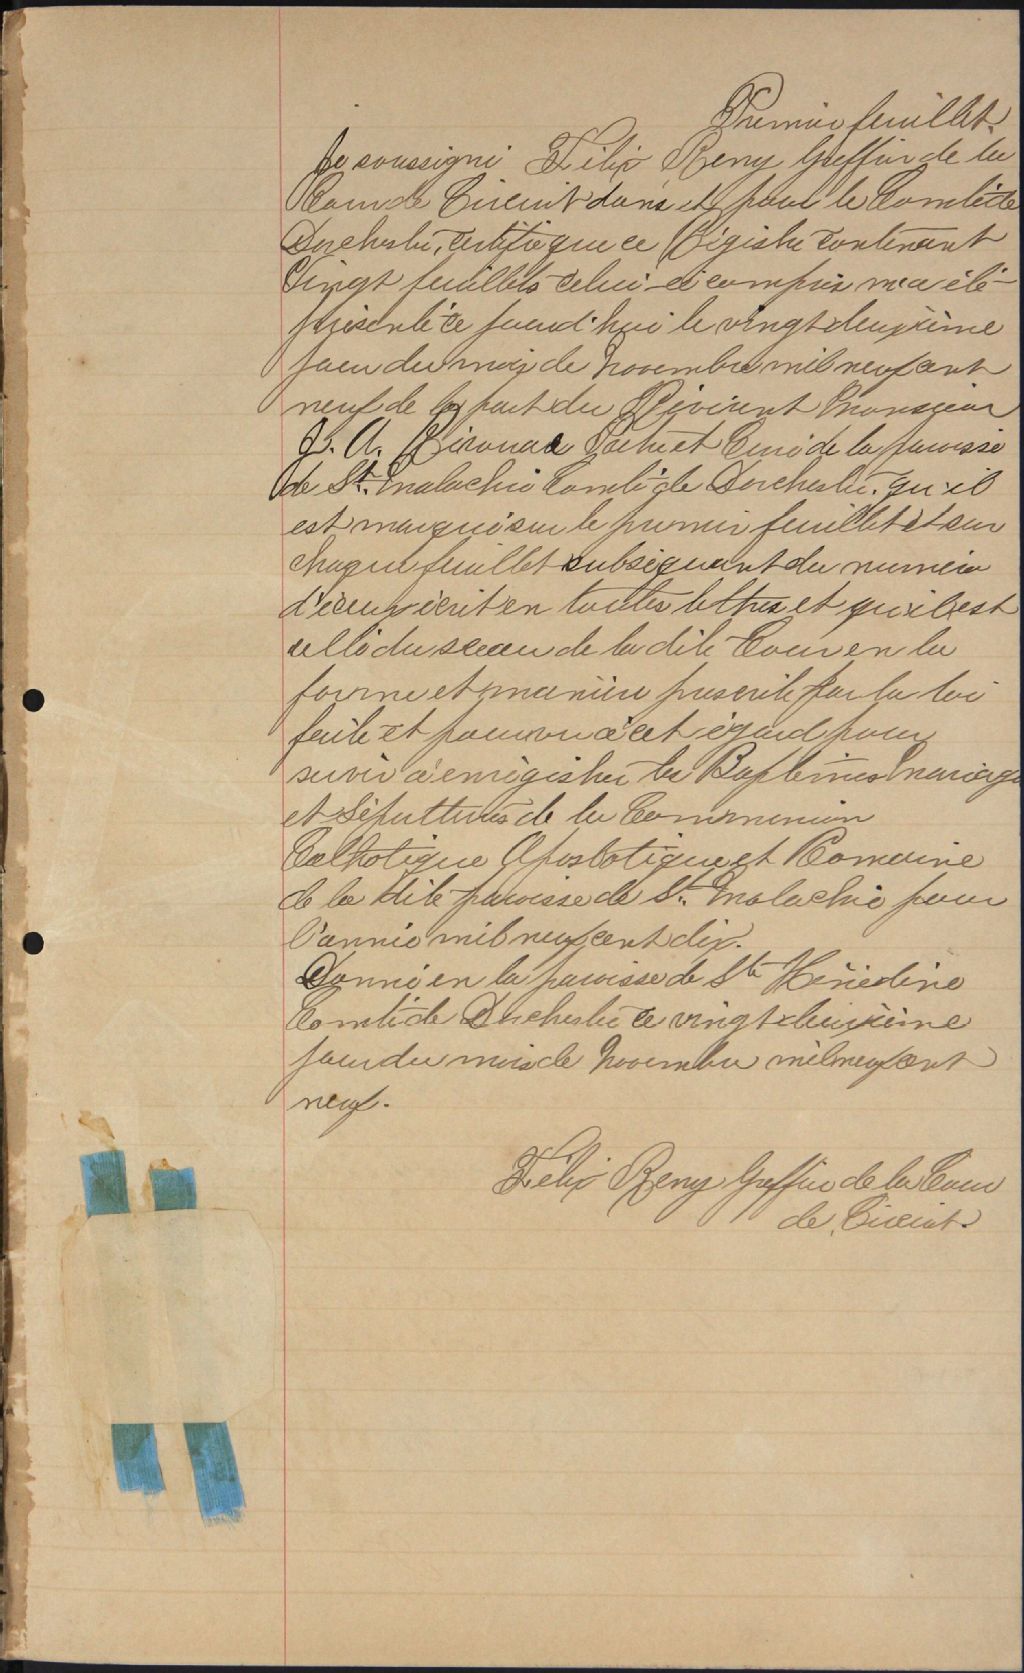 Premier feuillet.
Je soussigné Félix Remy Greffier de la
Cour de Circuit dans et pour le Comté de
Dorchester, certifie que ce Régistre contenant
Vingt feuillets celui-ci compris m'a été
présenté ce jourd'hui le vingt deuxième
jour du mois de Novembre mil neuf cent
neuf de la part du Révérend Monsieur
J. A. Kirouac Prêtre et Curé de la paroisse
de St. Malachie Comté de Dorchester. qu'il
est marqué sur le premier feuillet et sur
chaque feuillet subséquent du numéro
d'iceux écrit en toutes lettres et qu'il est
scellé du sceau de la dite Cour en la
forme et manière prescrite par la loi
faite et pourvu à cet égard pour
servir à enrégistrer les Baptêmes Mariages
et Sépultures de la Communion
Catholique Apostolique et Romaine
de la dite paroisse de St. Malachie pour
l'année mil neuf cent dix.
Donné en la paroisse de Ste Hénédine
Comté de Dorchester ce vingt deuxième
jour du mois de Novembre mil neuf cent
neuf.
Félix Remy Greffier de la Cour
de Circuit.